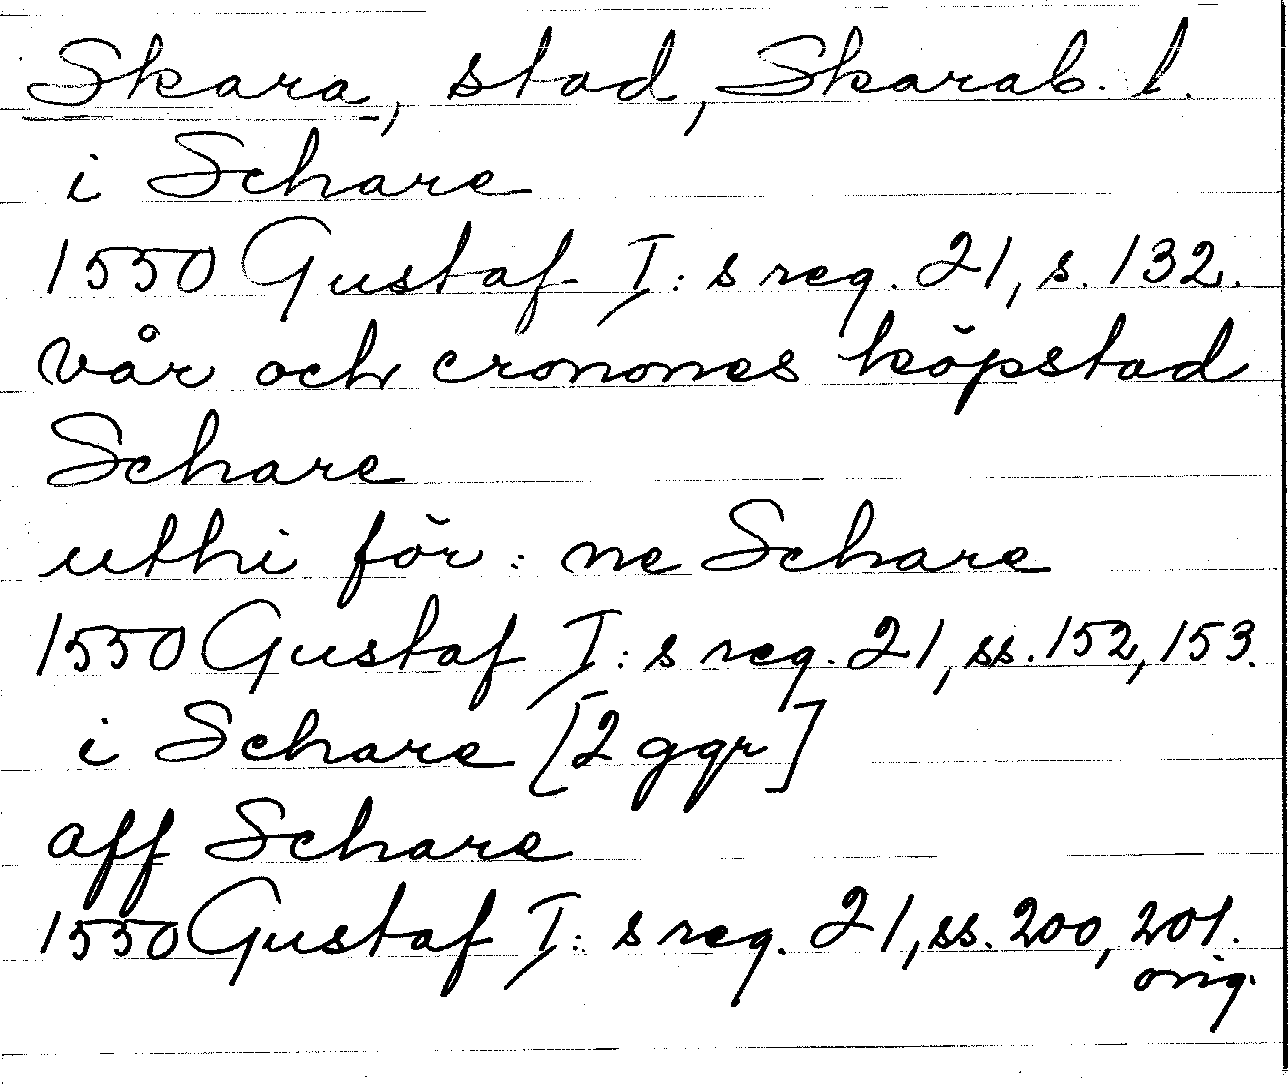 Skara, stad, Skarab. l.
i Schare
1550 Gustaf I:s reg. 21, s. 132.
vår och cronones köpstad
Schare
uthi för:ne Schare
1550 Gustaf I:s reg. 21, ss. 152, 153.
i Schare [2 ggr]
aff Schare
1550 Gustaf I:s reg. 21, ss. 200, 201.
orig.